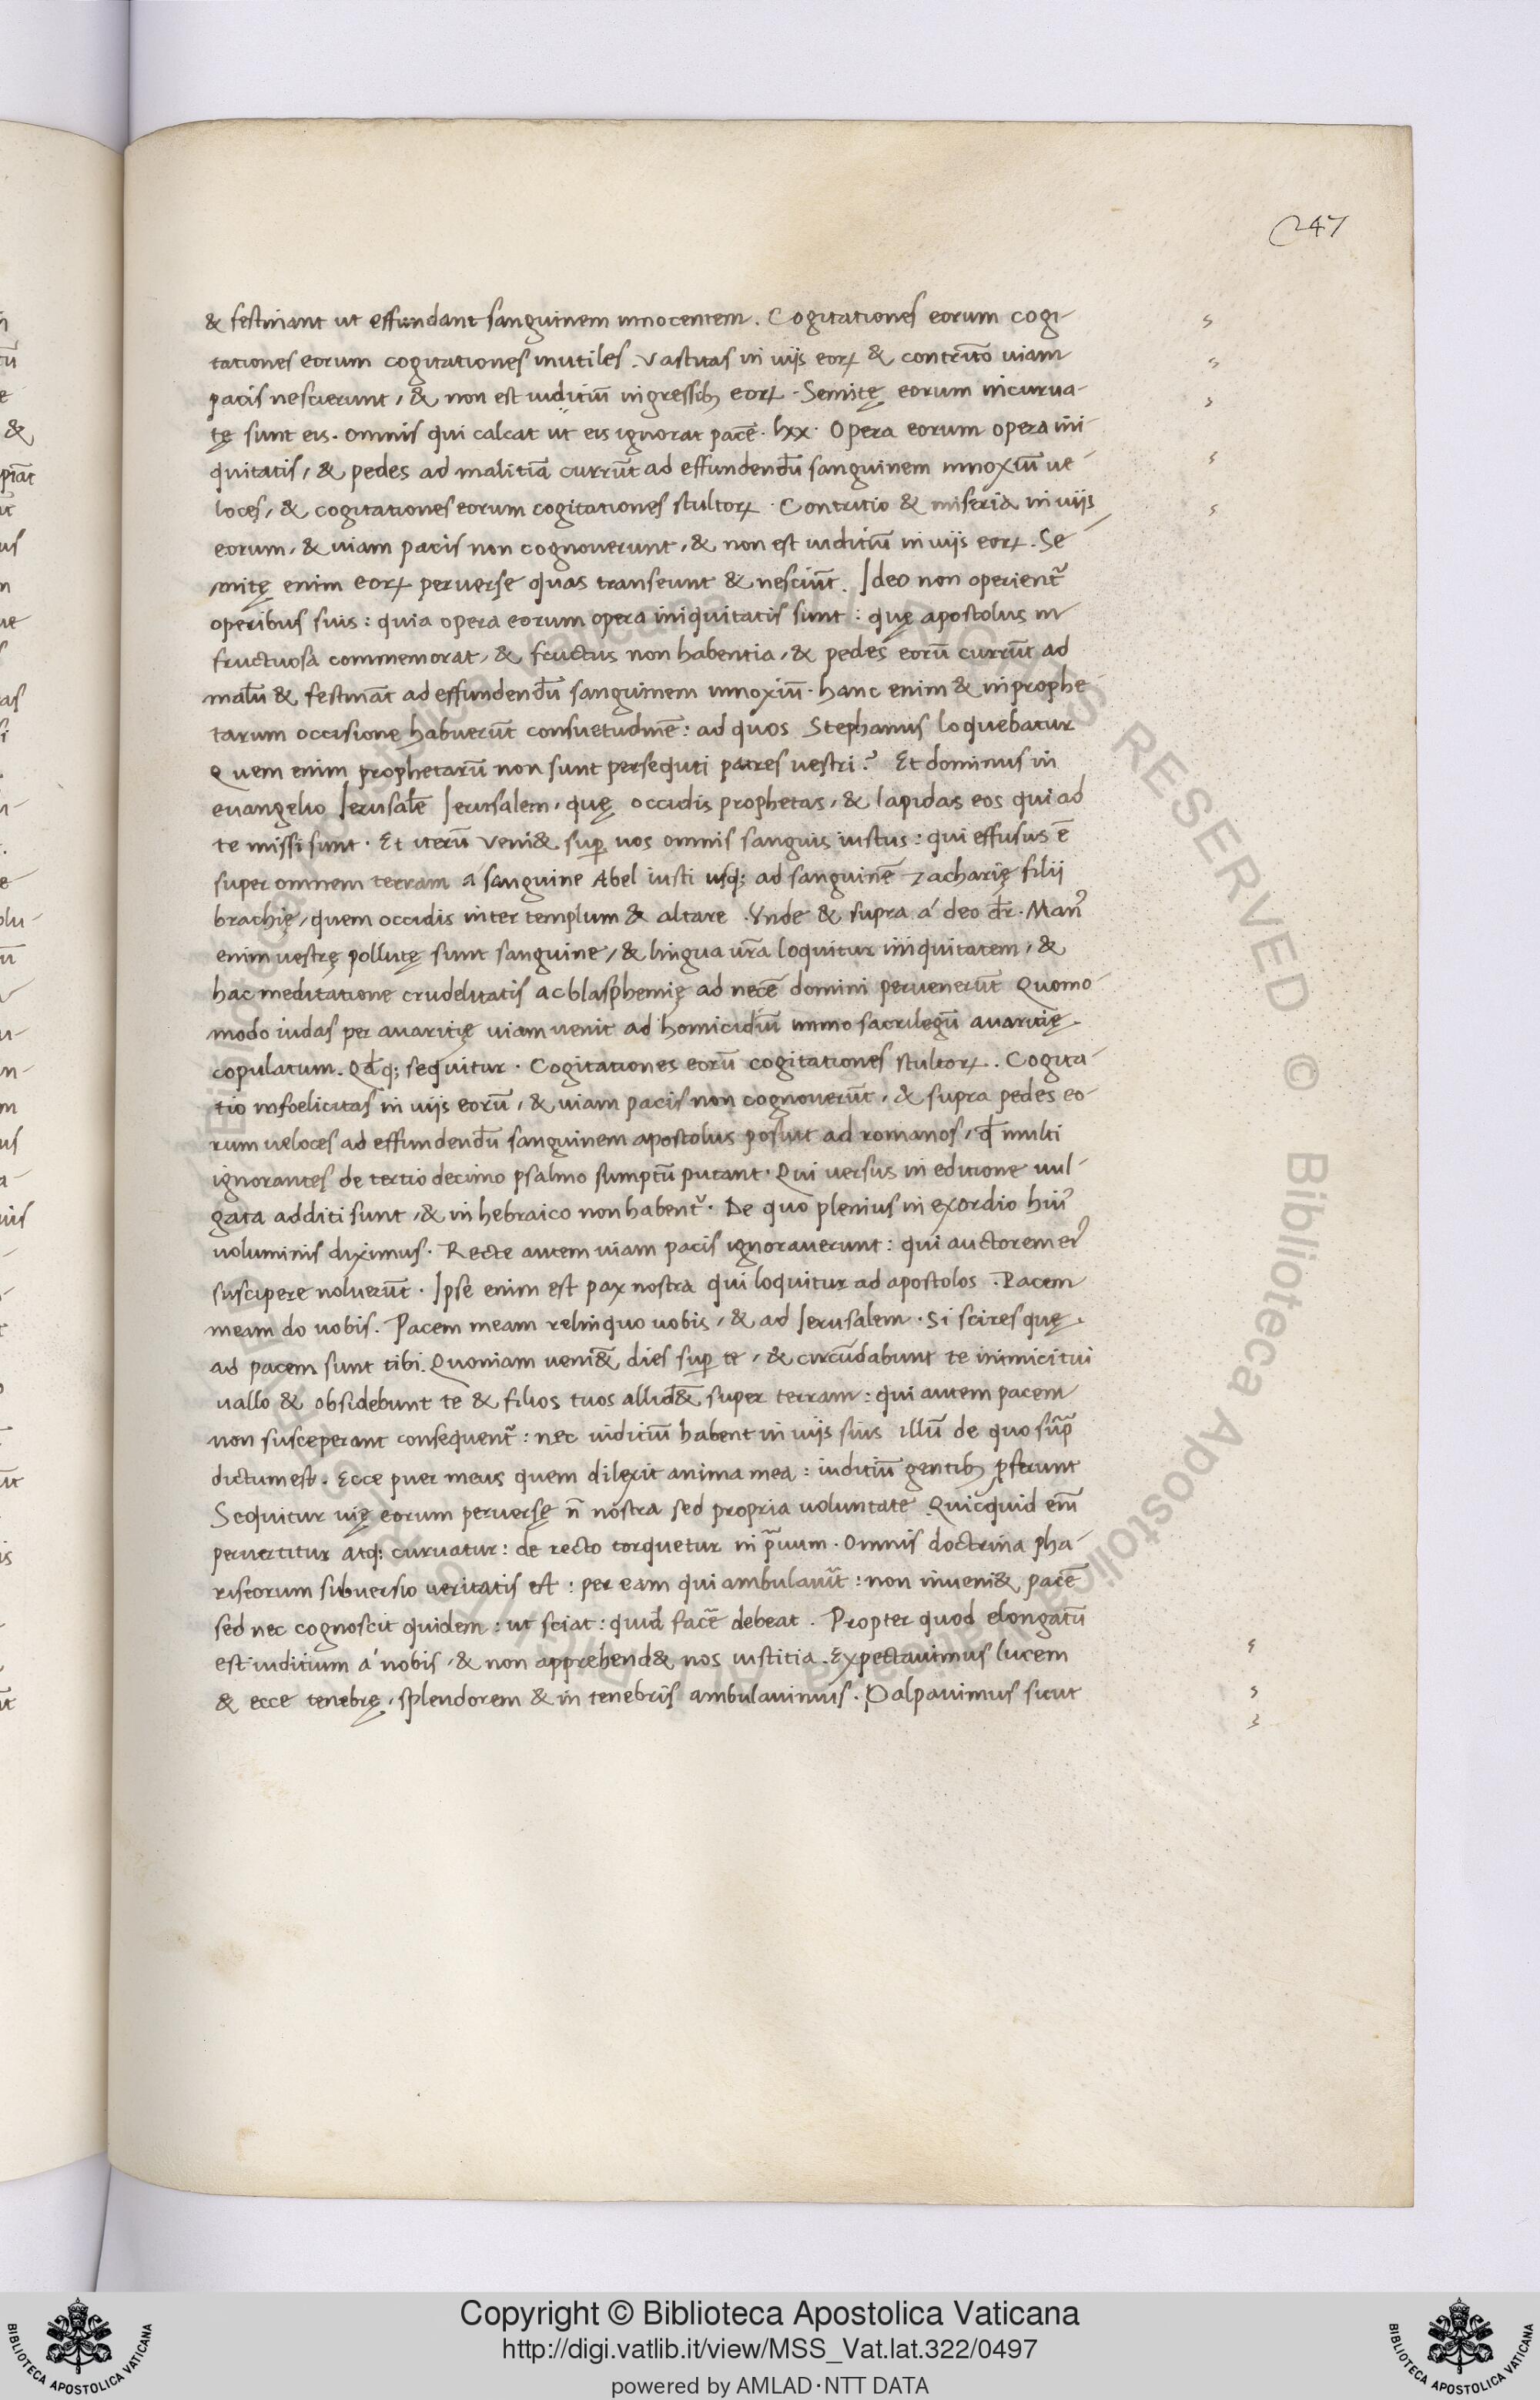 247
& festinant ut effundant sanguinem innocentem. Cogitationes eorum cogi-
tationes eorum cogitationes inutiles. Vastitas in uijs eorꝝ & contrit̄o uiam
pacis nescierunt, & non est iuditiū in gressibꝫ eorꝝ. Semitę eorum incurua-
tę sunt eis. omnis qui calcat ut eis ignorat pacē. lxx. Opera eorum opera ini-
quitatis, & pedes ad malitiā currūt ad effundendū sanguinem innoxiū ue-
loces, & cogitationes eorum cogitationes stultorꝝ. Contritio & miseria in uijs
eorum, & uiam pacis non cognouerunt, & non est iuditiū in uijs eorꝝ. Se-
mitę enim eorꝝ peruerse quas transeunt & nesciūt. Ideo non operient᷑
operibus suis: quia opera eorum opera iniquitatis sunt: quę apostolus in
fructuosa commemorat, & fructus non habentia, & pedes eorū currūt ad
malū & festināt ad effundendū sanguinem innoxiū. hanc enim & in prophe-
tarum occisione habuerūt consuetudinē: ad quos Stephanus loquebatur
Quem enim prophetarū non sunt persequti patres uestri? Et dominus in
euangelio Ierusalē Ierusalem, quę occidis prophetas, & lapidas eos qui ad
te missi sunt. Et iterū veni& suꝑ uos omnis sanguis iustus: qui effusus ē
super omnem terram á sanguine Abel iusti usqꝫ ad sanguinē zacharię filii
brachię, quem occidis inter templum & altare. Vnde & supra á deo dr̄. Manꝰ
enim uestrę pollutę sunt sanguine, & lingua ur̄a loquitur iniquitatem, &
hac meditatione crudelitatis ac blasphemię ad necē domini peruenerūt Quomo-
modo iudas per auaritię uiam uenit ad homicidiū immo sacrilegū auaritię
copulatum. Qd̄qꝫ sequitur. Cogitationes eorū cogitationes stultorꝝ. Cogita-
tio infoelicitas in uijs eorū, & uiam pacis non cognouerūt, & supra pedes eo-
rum ueloces ad effundendū sanguinem apostolus posuit ad romanos, qd̄ multi
ignorantes de tertio decimo psalmo sumptū putant. Qui versus in editione uul-
gata additi sunt, & in hebraico non habent᷑. De quo plenius in exordio huiꝰ
uoluminis diximus. Recte autem uiam pacis ignorauerunt: qui auctorem eiꝰ
suscipere noluerūt. Ipse enim est pax nostra qui loquitur ad apostolos. Pacem
meam do uobis. Pacem meam relinquo uobis, & ad Ierusalem. Si scires quę
ad pacem sunt tibi. Quoniam ueni&̄ dies suꝑ te, & circūdabunt te inimici tui
uallo & obsidebunt te & filios tuos allid&̄ super terram: qui autem pacem
non susceperant consequent᷑: nec iuditiū habent in uijs suis illū de quo sup̄
dictum est. Ecce puer meus quem dilexit anima mea: iuditiū gentibꝫ ꝓferunt
Sequitur uię eorum peruersę n̄ nostra sed propria uoluntate. Quicquid em̄
peruertitur atqꝫ curuatur: de recto torquetur in p̄uum. Omnis doctrina pha-
riseorum subuersio ueritatis est: per eam qui ambulauīt: non inueni& pacē
sed nec cognoscit quidem: ut sciat: quid facē debeat. Propter quod elongatū
est iuditium á nobis, & non apprehend& nos iustitia. Expectauimus lucem
& ecce tenebrę, splendorem & in tenebris ambulauimus. Palpauimus sicut
Copyright © Biblioteca Apostolica Vaticana
http://digi.vatlib.it/view/MSS_Vat.lat.322/0497
powered by AMLAD·NTT DATA